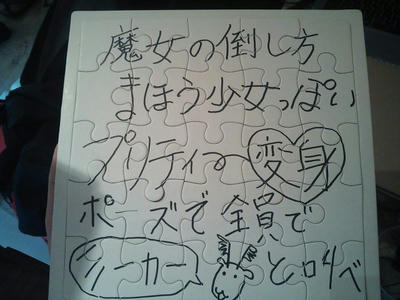 魔女の倒し方
まほう少女っぽい
プリティの変身
ポーズで全員で
と叫べ